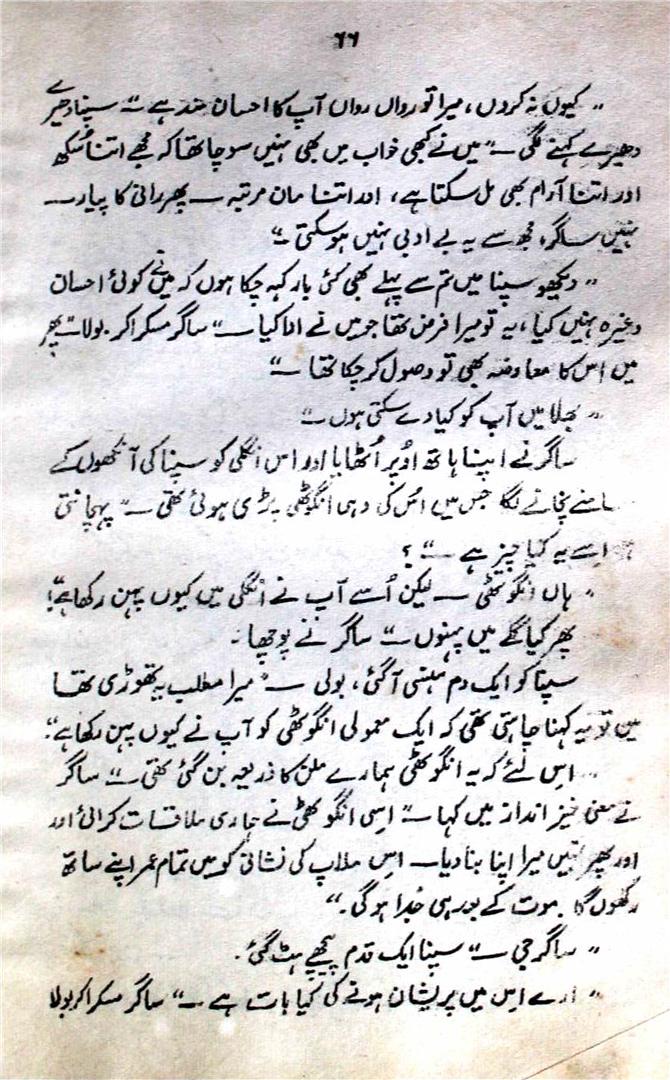 ۶۶
" کیوں نہ کروں، میرا تو رواں رواں آپ کا احسان مند ہے ـ" سپنا دھیرے
دھیرے کہنے لگی ـ" میں نے کبھی خواب میں بھی نہیں سوچا تھا کہ مجھے اتنا سُکھ
اور اتنا آرام بھی مل سکتا ہے، اور اتنا مان مرتبہ ـ پھر رانی کا پیار ـ
نہیں ساگر، مجھ سے یہ بے ادبی نہیں ہو سکتی ـ"
" دیکھو سپنا میں تم سے پہلے بھی کئی بار کہہ چکا ہوں کہ میں نے کوئی احسان
وغیرہ نہیں کیا، یہ تو میرا فرض تھا جو میں نے ادا کیا ـ" ساگر مسکرا کر بولا ـ" پھر
میں اس کا معاوضہ بھی تو وصول کر چکا تھا ـ"
" بھلا میں آپ کو کیا دے سکتی ہوں ـ"
ساگر نے اپنا ہاتھ اُوپر اُٹھایا اور اس انگلی کو سپنا کی آنکھوں کے
سامنے نچانے لگا جس میں اُس کی دہی انگوٹھی پڑی ہوئی تھی ـ" پہچانتی
اسے یہ کیا چیز ہے ـ" ؟
" ہاں انگوٹھی ـ لیکن اُسے آپ نے انگلی میں کیوں پہن رکھا ہے"؟
پھر کیا گلے میں پہنوں ـ" ساگر نے پوچھا ۔
سپنا کو ایک دم ہنسی آ گئی، بولی ـ" میرا مطلب یہ تھوڑی تھا
میں تو یہ کہنا چاہتی تھی کہ ایک معمولی انگوٹھی کو آپ نے کیوں پہن رکھا ہے"؟
" اس لئے کہ یہ انگوٹھی ہمارے ملن کا ذریعہ بن گئی تھی ـ" ساگر
نے معنی خیز انداز میں کہا ـ" اسی انگوٹھی نے ہماری ملاقات کرائی اور
اور پھر تمہیں میرا اپنا بنا دیا ـ اس ملاپ کی نشانی کو میں تمام عمر اپنے ساتھ
رکھوں گا ۔ موت کے بعد ہی جُدا ہو گی ۔"
" ساگر جی ـ" سپنا ایک قدم پیچھے ہٹ گئی ۔
" ارے اس میں پریشان ہونے کی کیا بات ہے ـ" ساگر مسکرا کر بولا